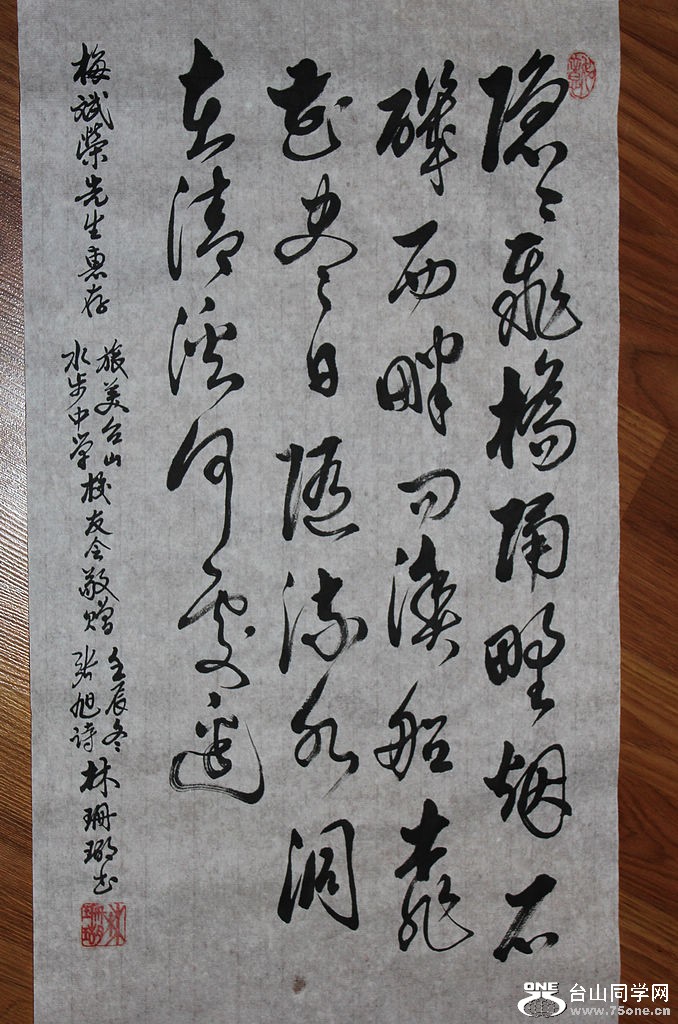 隱〻飛橋隔野烟石
磯西畔问漁船桃
花盡日隨流水洞
在清溪何處邊
梅斌榮先生惠存
旅美台山
水步中学
校友会敬赠
壬辰冬
张旭诗
林珊瑚书
ONE 台山同学网
www.75one.cn